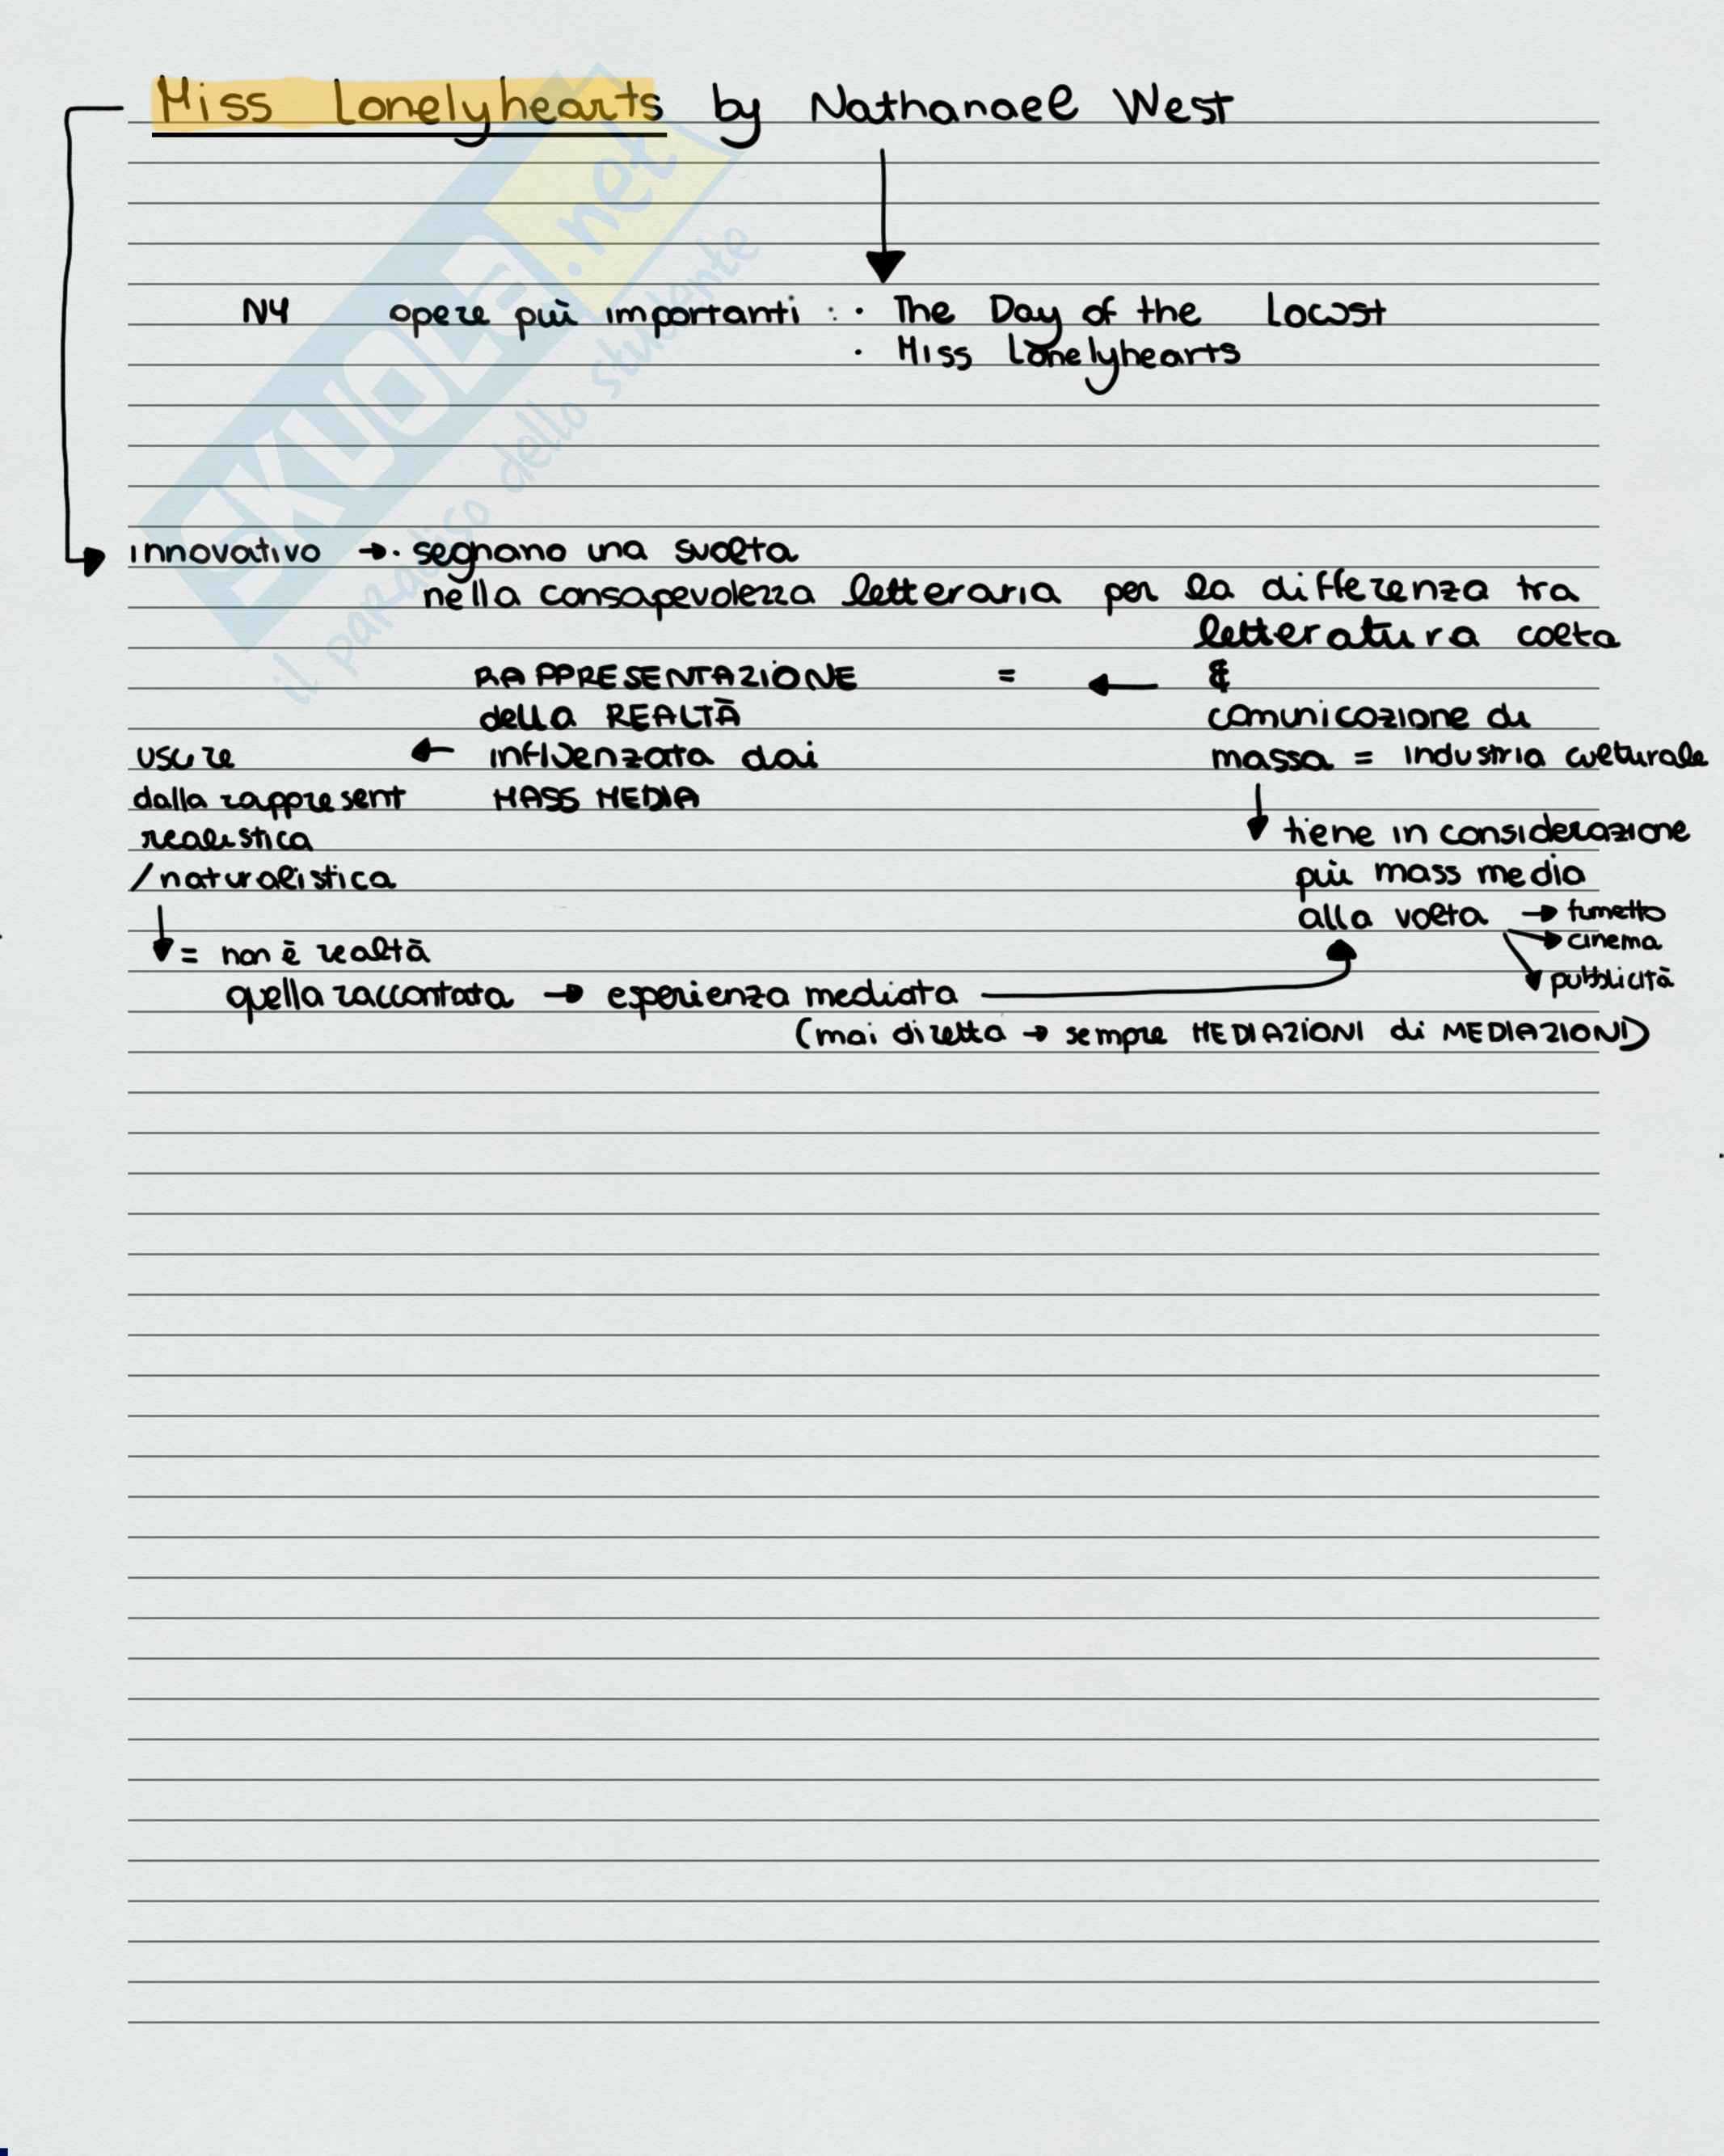 Miss Lonelyhearts by Nathanael West
NY opere più importanti : · The Day of the Locust
· Miss Lonelyhearts
innovativo → · segnano una svolta
nella consapevolezza letteraria per la differenza tra
letteratura colta
RAPPRESENTAZIONE = ← &
della REALTÀ comunicazione di
uscire ← influenzata dai massa = industria culturale
dalla rappresent MASS MEDIA
realistica ↓ tiene in considerazione
/naturalistica più mass media
alla volta → fumetto
→ cinema
↓ = non è realtà
pubblicità
quella raccontata → esperienza mediata
(mai diretta → sempre MEDIAZIONI di MEDIAZIONI)
SKUOLA.net
il paradiso dello studente